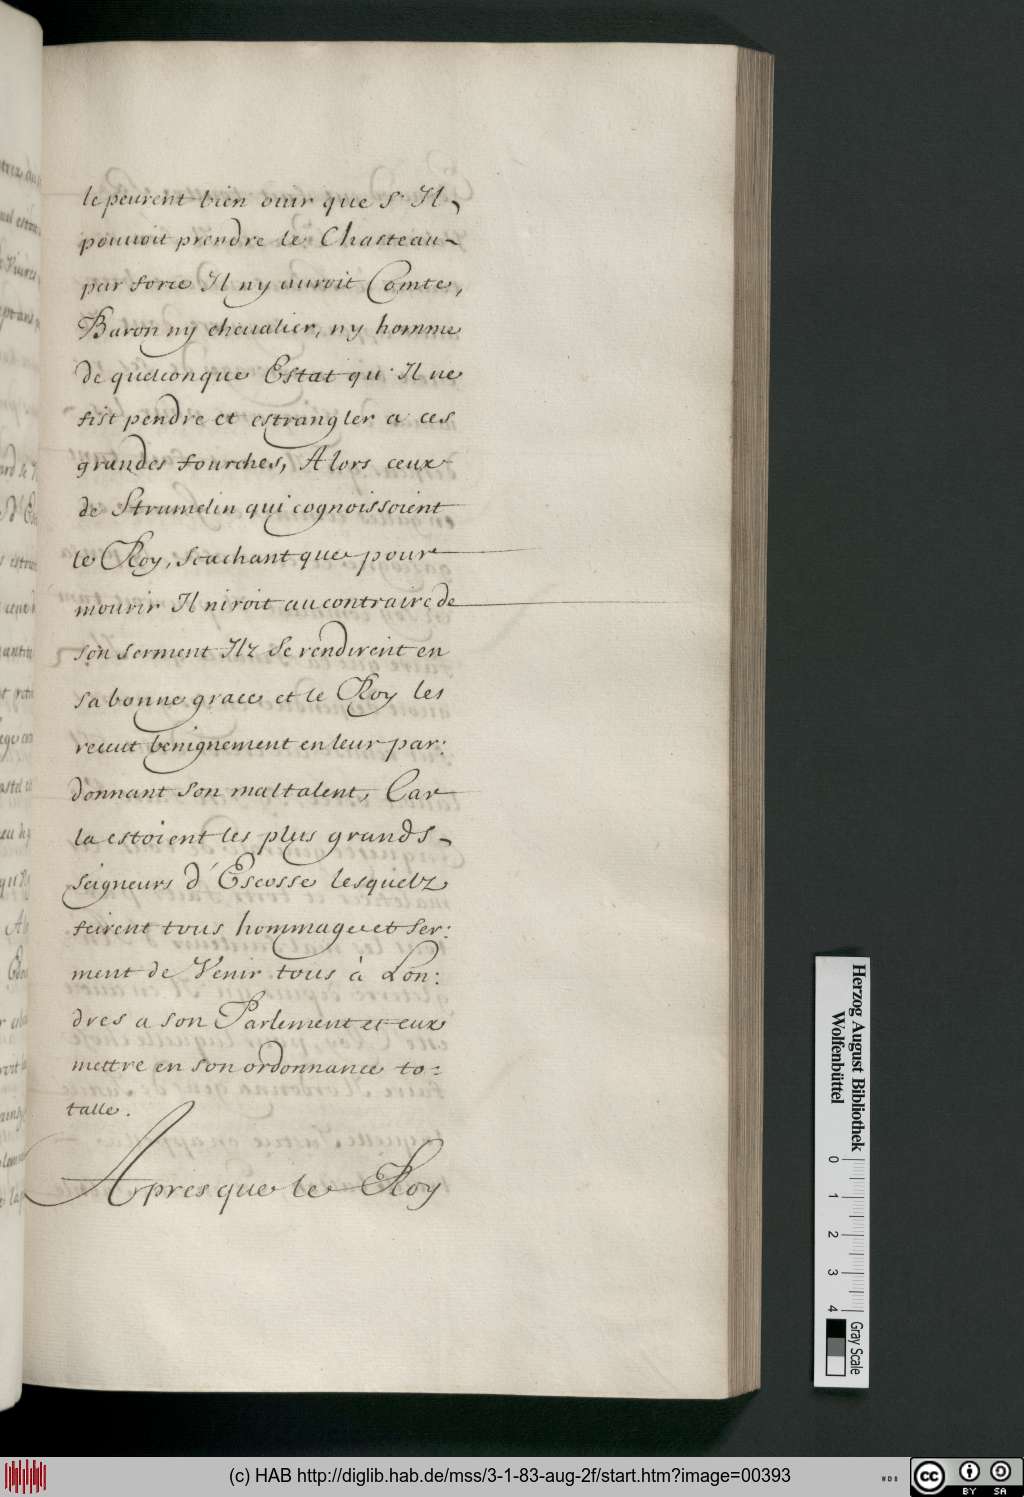 le peurent bien ouir que S'Il
pouuoit prendre le Chasteau
par force Il ny auroit Comte,
Baron ny cheualier, ny homme
de quelconque Estat qu'Il ne
fist pendre et estrangler a ces
grandes fourches, Alors ceux
de Strumelin qui cognoissoient
le Roy, scachant que pour
mourir Il niroit au contraire de
son serment Ilz se rendirent en
sa bonne grace et le Roy les
receut benignement en leur par:
donnant son maltalent, Car
la estoient les plus grands
seigneurs d'Escosse lesquelz
feirent tous hommage et ser:
ment de Venir tous à Lon:
dres a son Parlement et eux
mettre en son ordonnance to:
talle.
Apres que le Roy
Herzog August Bibliothek
Wolfenbüttel
0 1 2 3 4
Gray Scale
(c) HAB http://diglib.hab.de/mss/3-1-83-aug-2f/start.htm?image=00393
WDB
cc BY SA